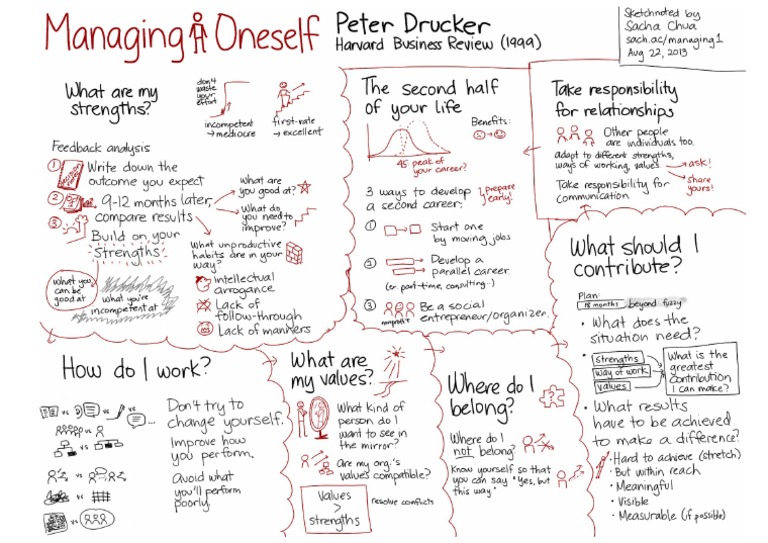 Managing Oneself
Peter Drucker
Harvard Business Review (1999)
Sketchnoted by
Sacha Chua
sach.ac/managing1
Aug 22, 2013
What are my
strengths?
don't
waste
your
effort
incompetent
→ mediocre
first-rate
→ excellent
Feedback analysis
1 Write down the
outcome you expect
2 9-12 months later,
compare results
3 Build on your
strengths
What are
you good at?
What do
you need to
improve?
What unproductive
habits are in your
way?
Intellectual
arrogance
Lack of
follow-through
Lack of manners
what you
can be
good at
what you're
incompetent at
The second half
of your life
Benefits:
45 peak of
your career?
3 ways to develop
a second career:
prepare
early!
1 Start one
by moving jobs
2 Develop a
parallel career
(or part-time, consulting...)
3 Be a social
entrepreneur/organizer.
nonprofit
Take responsibility
for relationships
Other people
are individuals too.
adapt to different strengths,
ways of working, values
→ ask!
→ share
yours!
Take responsibility for
communication.
What should I
contribute?
Plan:
18 months beyond fuzzy
• What does the
situation need?
strengths
way of work
values
What is the
greatest
contribution
I can make?
• What results
have to be achieved
to make a difference?
• Hard to achieve (stretch)
• But within reach
• Meaningful
• Visible
• Measurable (if possible)
How do I work?
vs vs vs
vs
vs
vs
vs
vs
Don't try to
change yourself.
Improve how
you perform.
Avoid what
you'll perform
poorly.
What are
my values?
What kind of
person do I
want to see in
the mirror?
Are my org.'s
values compatible?
Values
>
strengths
resolve conflicts
Where do I
belong?
Where do I
not belong?
Know yourself so that
you can say "Yes, but
this way."